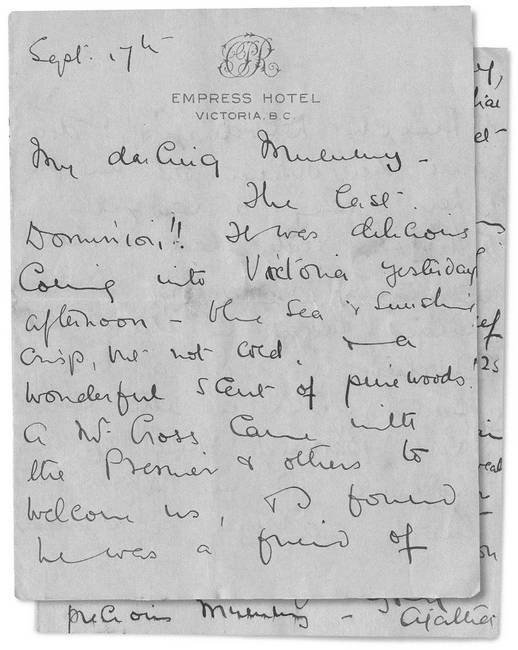 Sept. 17th
CPR
EMPRESS HOTEL
VICTORIA, B.C.
My darling Mummy –
The last
Dominion!! It was delicious
Coming into Victoria yesterday
afternoon – blue sea & sunshine
crisp, but not cold, & a
wonderful scent of pinewoods.
A Mr Cross came with
the Premier & others to
welcome us, found
he was a friend of
precious Mummy – Agatha